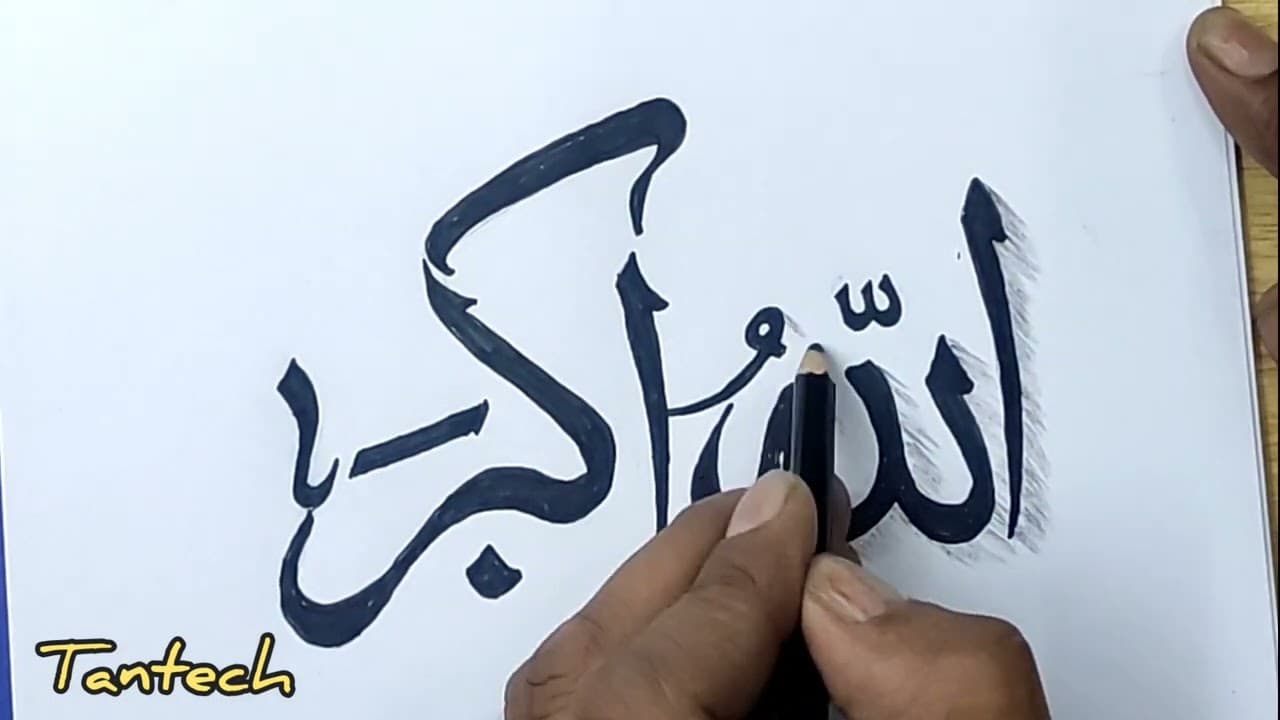 اللّٰهُ اكبر
Tantech